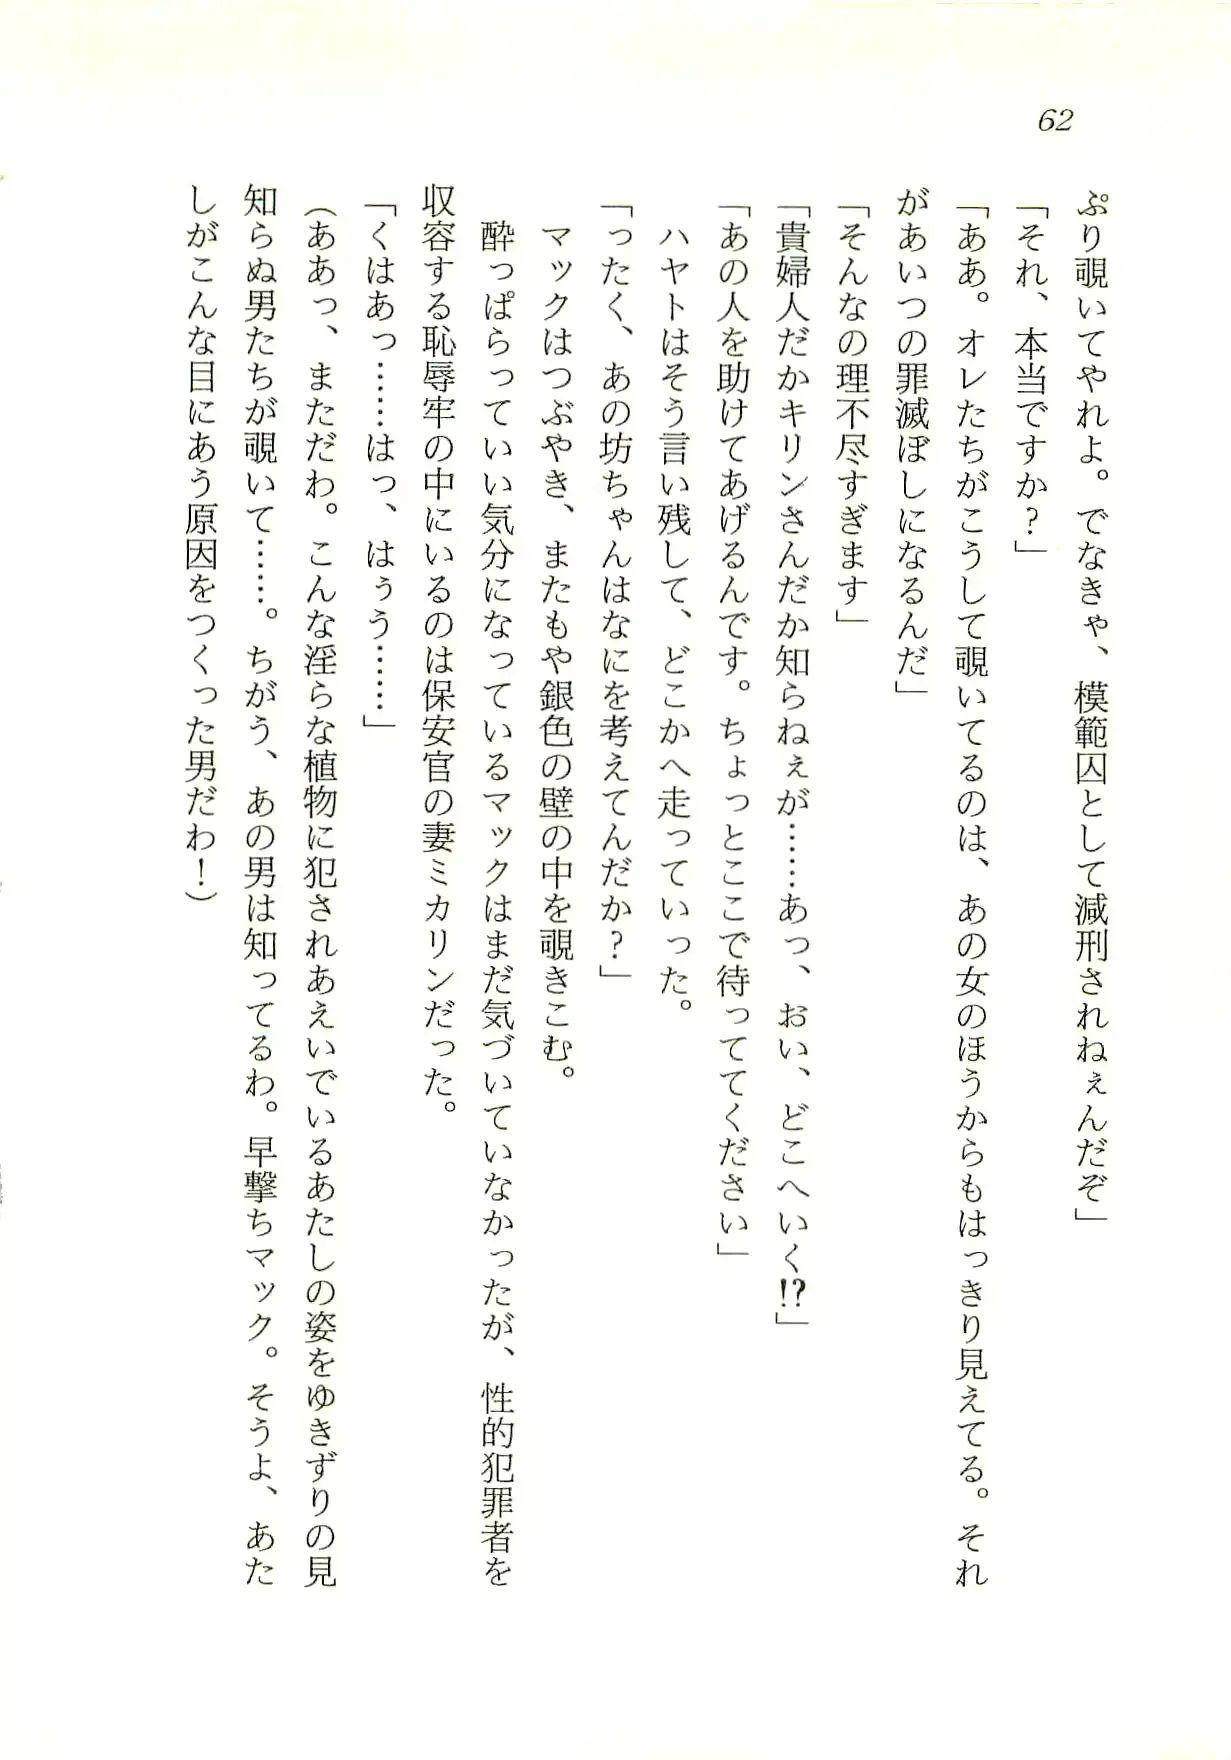 62
ぷり覗いてやれよ。でなきゃ、模範囚として減刑されねぇんだぞ」
「それ、本当ですか？」
「ああ。オレたちがこうして覗いてるのは、あの女のほうからもはっきり見えてる。それ
があいつの罪滅ぼしになるんだ」
「そんなの理不尽すぎます」
「貴婦人だかキリンさんだか知らねぇが……あっ、おい、どこへいく!?」
「あの人を助けてあげるんです。ちょっとここで待っててください」
　ハヤトはそう言い残して、どこかへ走っていった。
「ったく、あの坊ちゃんはなにを考えてんだか？」
　マックはつぶやき、またもや銀色の壁の中を覗きこむ。
　酔っぱらっていい気分になっているマックはまだ気づいていなかったが、性的犯罪者を
収容する恥辱牢の中にいるのは保安官の妻ミカリンだった。
「くはあっ……はっ、はぅう……」
（ああっ、まただわ。こんな淫らな植物に犯されあえいでいるあたしの姿をゆきずりの見
知らぬ男たちが覗いて……。ちがう、あの男は知ってるわ。早撃ちマック。そうよ、あた
しがこんな目にあう原因をつくった男だわ！）